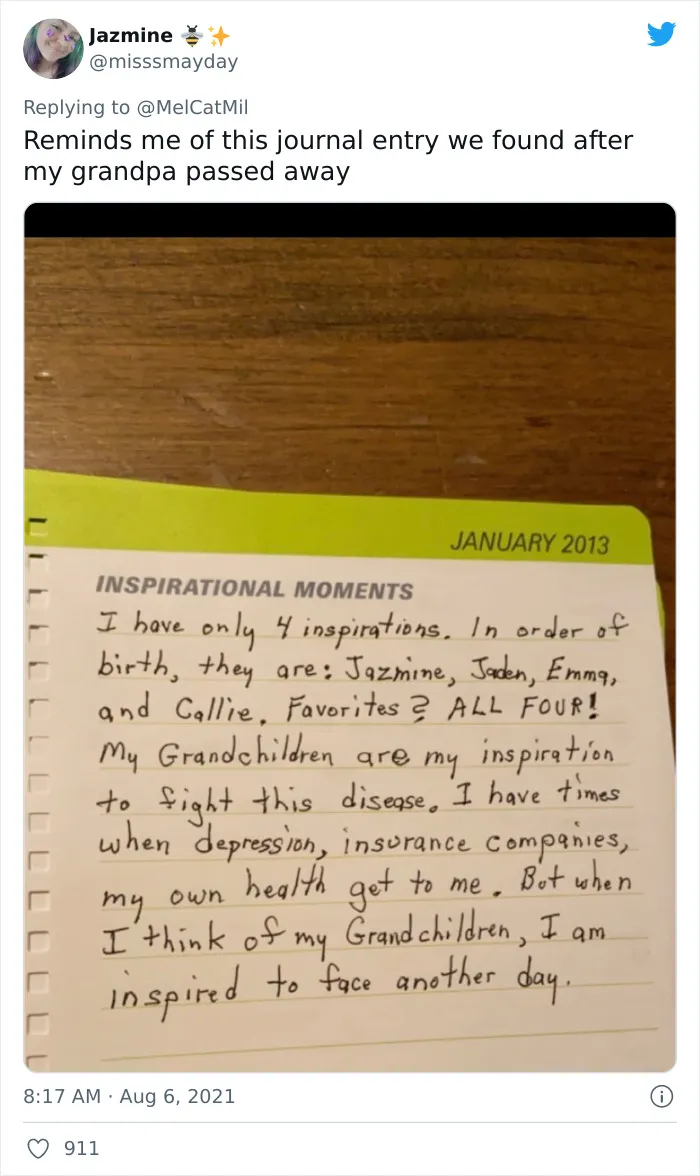 Jazmine 🐝✨
@misssmayday
Replying to @MelCatMil
Reminds me of this journal entry we found after
my grandpa passed away
JANUARY 2013
INSPIRATIONAL MOMENTS
I have only 4 inspirations. In order of
birth, they are: Jazmine, Jaden, Emma,
and Callie. Favorites? ALL FOUR!
My Grandchildren are my inspiration
to fight this disease. I have times
when depression, insurance companies,
my own health get to me. But when
I think of my Grandchildren, I am
inspired to face another day.
8:17 AM · Aug 6, 2021
911